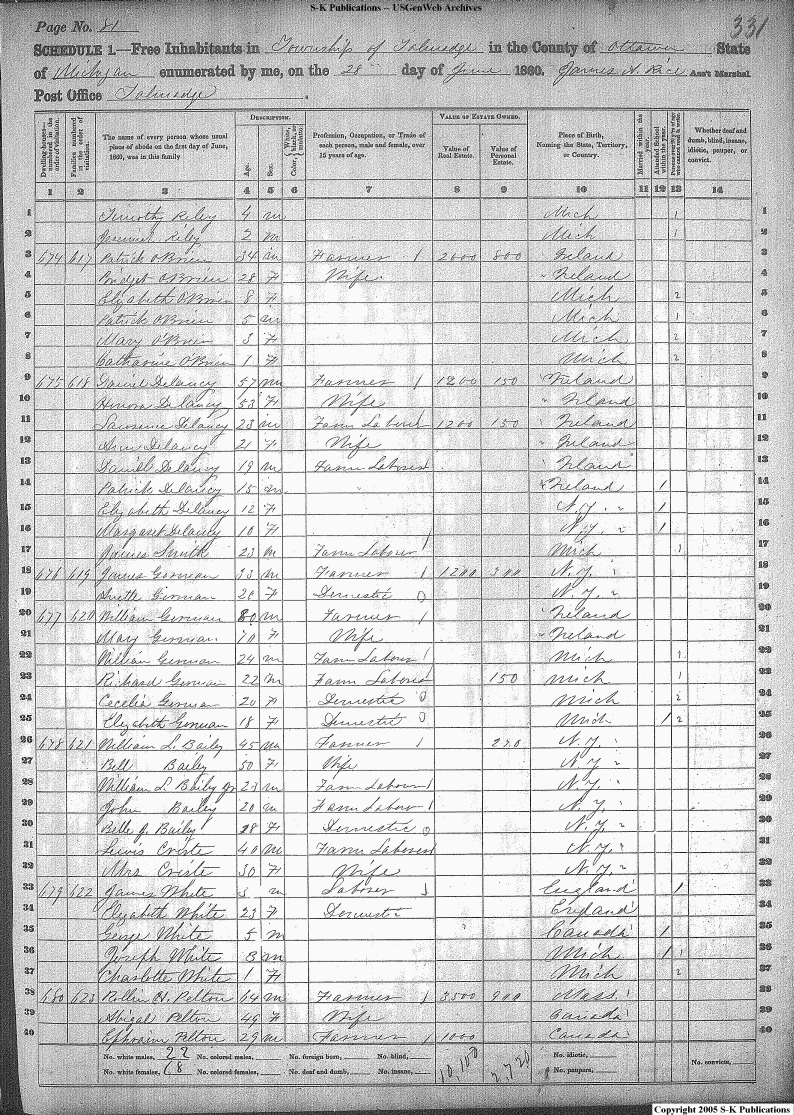 S-K Publications – USGenWeb Archives
Page No. 81
331
SCHEDULE 1.—Free Inhabitants in Township of Talmadge in the County of Ottawa State
of Michigan enumerated by me, on the 28 day of June 1860. James A. Rice Ass't Marshal.
Post Office Talmadge.
DESCRIPTION. VALUE OF ESTATE OWNED.
Dwelling-houses—numbered in the order of visitation. Families numbered in the order of visitation. The name of every person whose usual place of abode on the first day of June, 1860, was in this family. Age. Sex. Color, White, black, or mulatto. Profession, Occupation, or Trade of each person, male and female, over 15 years of age. Value of Real Estate. Value of Personal Estate. Place of Birth, Naming the State, Territory, or Country. Married within the year. Attended School within the year. Persons over 20 y'rs of age who cannot read & write. Whether deaf and dumb, blind, insane, idiotic, pauper, or convict.
1 2 3 4 5 6 7 8 9 10 11 12 13 14
1 Timothy Riley 4 m Mich 1 1
2 Riley 2 m Mich 1 2
3 674 617 Patrick O'Brien 34 m Farmer 1 2000 800 Ireland 3
4 Bridget O'Brien 28 F Wife " Ireland 4
5 Elizabeth O'Brien 8 F Mich 2 5
6 Patrick O'Brien 5 m Mich 1 6
7 Mary O'Brien 3 F Mich 2 7
8 Catharine O'Brien 1 F Mich 2 8
9 675 618 Daniel Delancy 57 m Farmer 1 1200 150 Ireland 9
10 Honora Delancy 53 F Wife " Irland 10
11 Lawrence Delancy 23 m Farm Laborer 1200 150 " Ireland 11
12 Ann Delancy 21 F Wife " Ireland 12
13 Daniell Delancy 19 m Farm Laborer " Irland 13
14 Patrick Delancy 15 m " Ireland 1 14
15 Elizabeth Delancy 12 F N.Y. 1 15
16 Margaret Delancy 10 F N.Y. 1 16
17 James Smith 23 m Farm Laborer 1 Mich 1 17
18 676 619 James Gorman 33 m Farmer 1 1200 300 N.Y. 18
19 Gorman 20 F Domestic 0 N.Y. 19
20 677 620 William Gorman 80 m Farmer 1 Ireland 20
21 Mary Gorman 70 F Wife " Ireland 21
22 William Gorman 24 m Farm Laborer 1 Mich 1 22
23 Richard Gorman 22 m Farm Laborer 150 Mich 1 23
24 Cecelia Gorman 20 F Domestic 0 Mich 2 24
25 Elyzabeth Gorman 18 F Domestic 0 Mich 1 2 25
26 678 621 William L. Baily 45 m Farmer 1 270 N.Y. 26
27 Bell Bailey 50 F Wife N.Y. 27
28 William L. Baily Jr 23 m Farm Laborer 1 N.Y. 28
29 John Bailey 20 m Farm Laborer 1 N.Y. 29
30 Belle J. Bailey 28 F Domestic 0 N.Y. 30
31 Lewis Criste 40 m Farm Laborer N.Y. 31
32 Mrs Criste 30 F Wife N.Y. 32
33 679 622 James White m Laborer England 1 33
34 Elyzabeth White 23 F Domestic England 34
35 George White 5 m Canada 1 35
36 Joseph White 3 m Mich 1 1 36
37 Charlotte White 1 F Mich 2 37
38 680 623 Rollin H. Pelton 64 m Farmer 1 3500 900 Mass 38
39 Abigal Pelton 49 F Wife Canada 39
40 Ephraim Pelton 29 m Farmer 1 1000 Canada 40
No. white males, 22 No. colored males, No. foreign born, No. blind, 10,100 2,720 No. idiotic,
No. white females, 18 No. colored females, No. deaf and dumb, No. insane, No. paupers, No. convicts,
Copyright 2005 S-K Publications